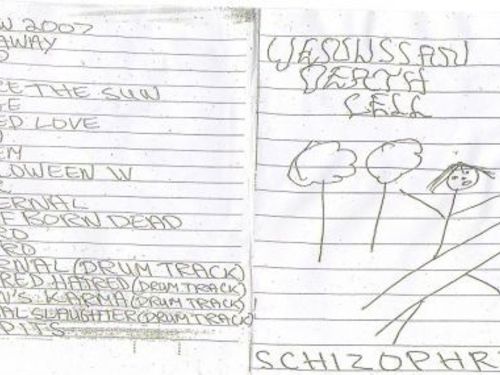 W 2007
AWAY
CE THE SUN
GE
ED LOVE
EM
LLOWEEN IV
ERNAL
E BORN DEAD
RD
RD
RNAL (DRUM TRACK)
RED HATRED (DRUM TRACK)
N'S KARMA (DRUM TRACK)
AL SLAUGHTER (DRUM TRACK)
PITS
VENUSIAN
DEATH
CELL
SCHIZOPHR